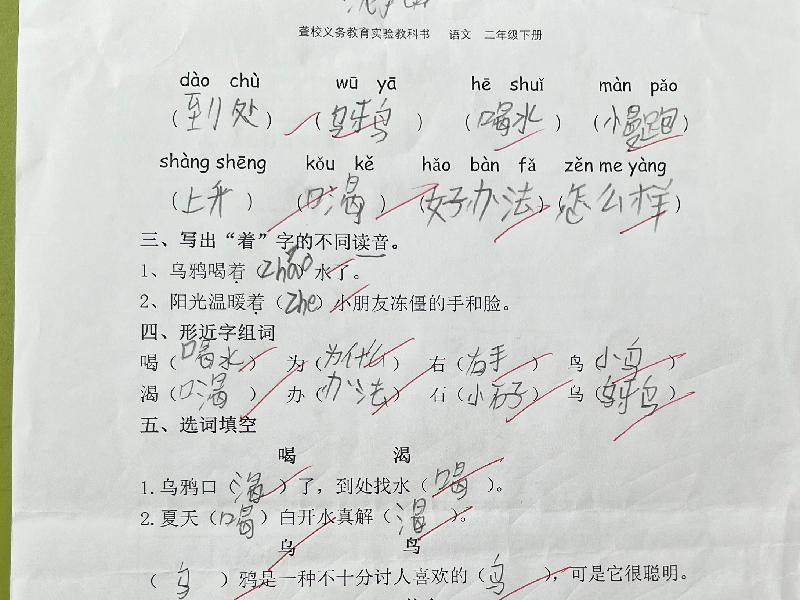 聋校义务教育实验教科书 语文 二年级下册
dào chù wū yā hē shuǐ màn pǎo
(到处) (乌鸦) (喝水) (慢跑)
shàng shēng kǒu kě hǎo bàn fǎ zěn me yàng
(上升) (口渴) (好办法) (怎么样)
三、写出“着”字的不同读音。
1、乌鸦喝着(zháo)水了。
2、阳光温暖着(zhe)小朋友冻僵的手和脸。
四、形近字组词
喝(喝水) 为(为什么) 右(右手) 鸟(小鸟)
渴(口渴) 办(办法) 石(小石子) 乌(乌鸦)
五、选词填空
喝 渴
1.乌鸦口(渴)了,到处找水(喝)。
2.夏天(喝)白开水真解(渴)。
乌 鸟
(乌)鸦是一种不十分讨人喜欢的(鸟),可是它很聪明。